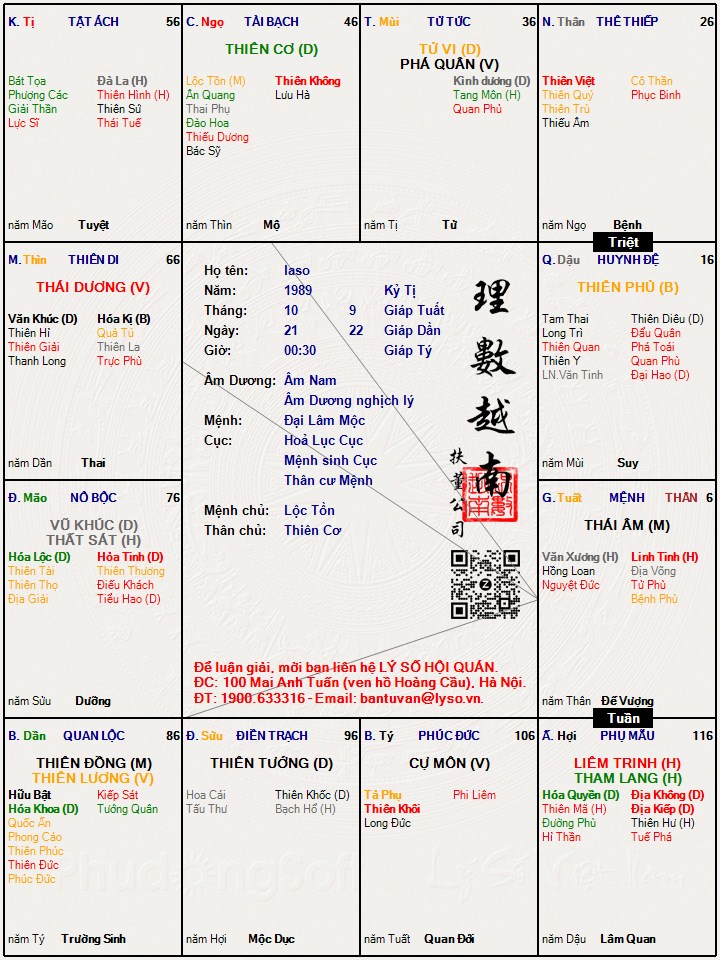 K. Tị TẬT ÁCH 56
Bát Tọa Đà La (H)
Phượng Các Thiên Hình (H)
Giải Thần Thiên Sứ
Lực Sĩ Thái Tuế
năm Mão Tuyệt
C. Ngọ TÀI BẠCH 46
THIÊN CƠ (D)
Lộc Tồn (M) Thiên Không
Ân Quang Lưu Hà
Thai Phụ
Đào Hoa
Thiếu Dương
Bác Sỹ
năm Thìn Mộ
T. Mùi TỬ TỨC 36
TỬ VI (D)
PHÁ QUÂN (V)
Kình dương (D)
Tang Môn (H)
Quan Phủ
năm Tị Tử
N. Thân THÊ THIẾP 26
Thiên Việt Cô Thần
Thiên Quý Phục Binh
Thiên Trù
Thiếu Âm
năm Ngọ Bệnh
Triệt
M. Thìn THIÊN DI 66
THÁI DƯƠNG (V)
Văn Khúc (D) Hóa Kị (B)
Thiên Hỉ Quả Tú
Thiên Giải Thiên La
Thanh Long Trực Phù
năm Dần Thai
Họ tên: laso
Năm: 1989 Kỷ Tị
Tháng: 10 9 Giáp Tuất
Ngày: 21 22 Giáp Dần
Giờ: 00:30 Giáp Tý
Âm Dương: Âm Nam
Âm Dương nghịch lý
Mệnh: Đại Lâm Mộc
Cục: Hoả Lục Cục
Mệnh sinh Cục
Thân cư Mệnh
Mệnh chủ: Lộc Tồn
Thân chủ: Thiên Cơ
理數越南
扶董公司
Để luận giải, mời bạn liên hệ LÝ SỐ HỘI QUÁN.
ĐC: 100 Mai Anh Tuấn (ven hồ Hoàng Cầu), Hà Nội.
ĐT: 1900.633316 - Email: bantuvan@lyso.vn.
Q. Dậu HUYNH ĐỆ 16
THIÊN PHỦ (B)
Tam Thai Thiên Diêu (D)
Long Trì Đẩu Quân
Thiên Quan Phá Toái
Thiên Y Quan Phù
LN.Văn Tinh Đại Hao (D)
năm Mùi Suy
Đ. Mão NÔ BỘC 76
VŨ KHÚC (D)
THẤT SÁT (H)
Hóa Lộc (D) Hỏa Tinh (D)
Thiên Tài Thiên Thương
Thiên Thọ Điếu Khách
Địa Giải Tiểu Hao (D)
năm Sửu Dưỡng
G. Tuất MỆNH THÂN 6
THÁI ÂM (M)
Văn Xương (H) Linh Tinh (H)
Hồng Loan Địa Võng
Nguyệt Đức Tử Phù
Bệnh Phù
năm Thân Đế Vượng
Tuần
B. Dần QUAN LỘC 86
THIÊN ĐỒNG (M)
THIÊN LƯƠNG (V)
Hữu Bật Kiếp Sát
Hóa Khoa (D) Tướng Quân
Quốc Ấn
Phong Cáo
Thiên Phúc
Thiên Đức
Phúc Đức
năm Tý Trường Sinh
Đ. Sửu ĐIỀN TRẠCH 96
THIÊN TƯỚNG (D)
Hoa Cái Thiên Khốc (D)
Tấu Thư Bạch Hổ (H)
năm Hợi Mộc Dục
B. Tý PHÚC ĐỨC 106
CỰ MÔN (V)
Tả Phụ Phi Liêm
Thiên Khôi
Long Đức
năm Tuất Quan Đới
Ấ. Hợi PHỤ MẪU 116
LIÊM TRINH (H)
THAM LANG (H)
Hóa Quyền (D) Địa Không (D)
Thiên Mã (H) Địa Kiếp (D)
Đường Phù Thiên Hư (H)
Hỉ Thần Tuế Phá
năm Dậu Lâm Quan